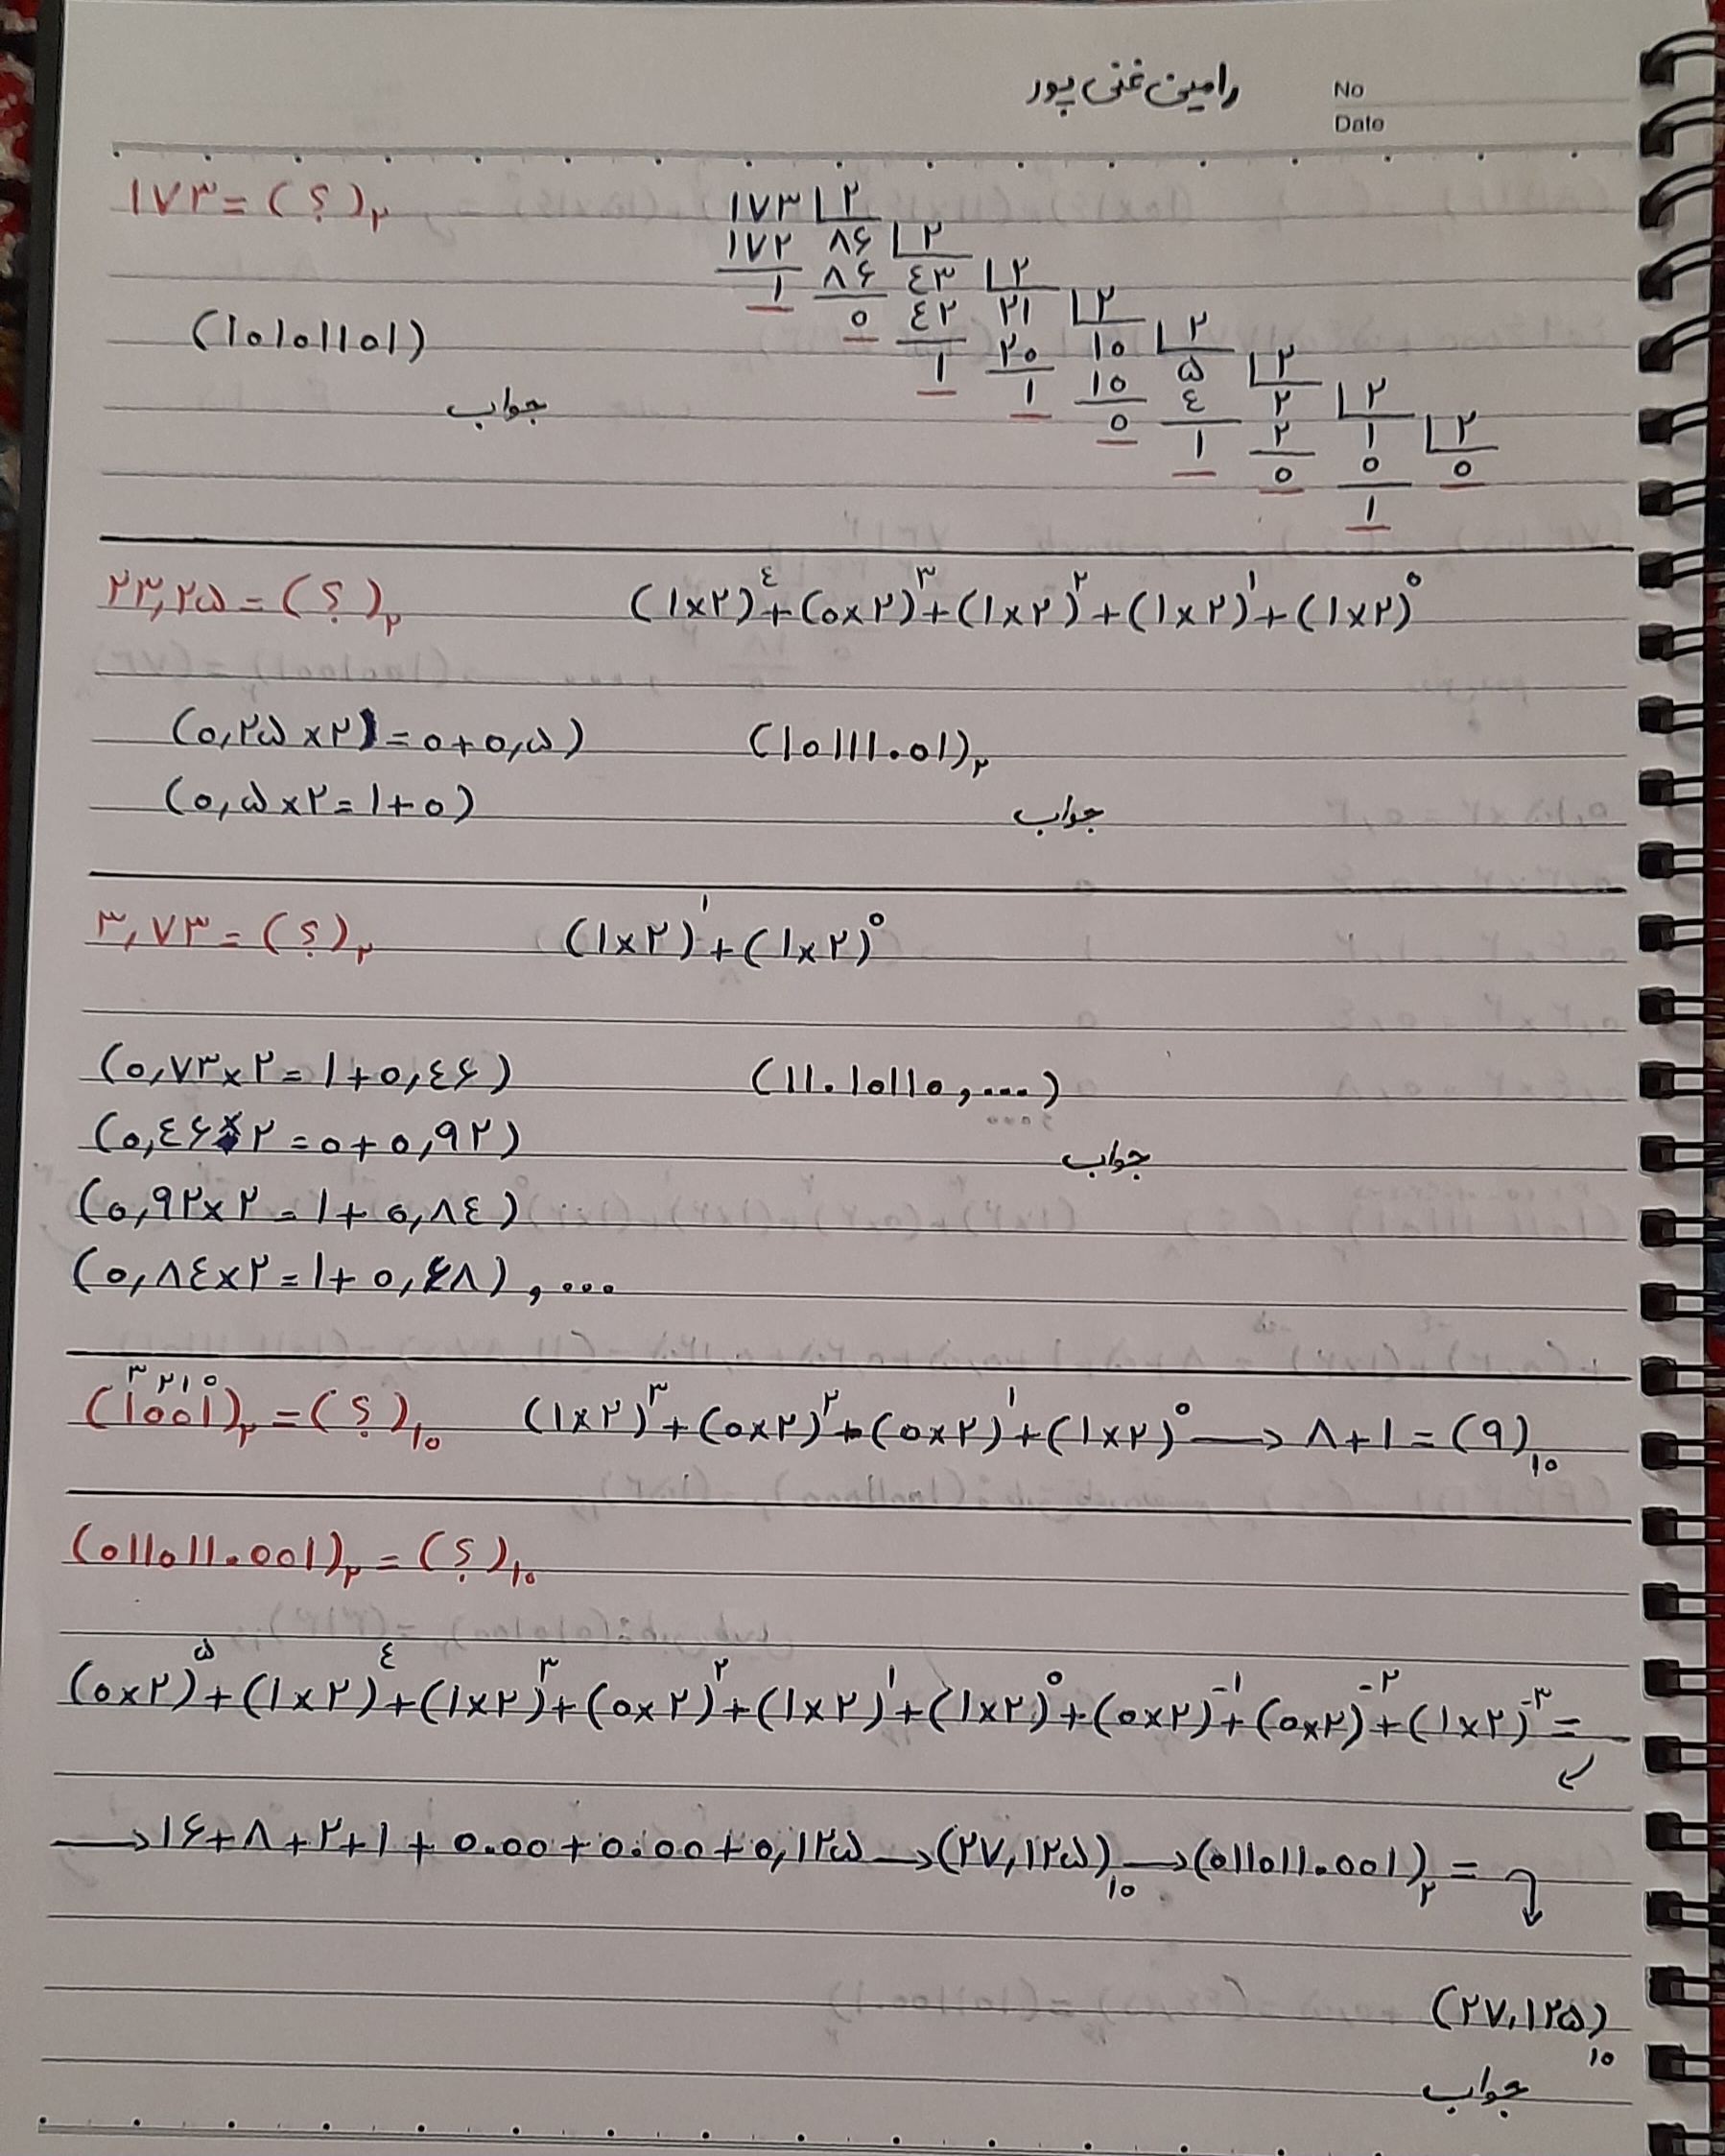 رامین غنی پور
No
Date
۱۷۳ = (؟)۲
۱۷۳ ۲
۱۷۲ ۸۶ ۲
۱ ۸۶ ٤۳ ۲
۰ ٤۲ ۲۱ ۲
۱ ۲۰ ۱۰ ۲
۱ ۱۰ ۵ ۲
۰ ٤ ۲ ۲
۱ ۲ ۱ ۲
۰ ۰ ۰
۱
(۱۰۱۰۱۱۰۱)
جواب
۲۳,۲۵ = (؟)۲ (۱×۲)^٤ + (۰×۲)^۳ + (۱×۲)^۲ + (۱×۲)^۱ + (۱×۲)^۰
(۰,۲۵×۲) = ۰+۰,۵) (۱۰۱۱۱.۰۱)۲
(۰,۵×۲ = ۱+۰) جواب
۳,۷۳ = (؟)۲ (۱×۲)^۱ + (۱×۲)^۰
(۰,۷۳×۲ = ۱+۰,٤۶) (۱۱.۱۰۱۱۰,...)
(۰,٤۶×۲ = ۰+۰,۹۲) جواب
(۰,۹۲×۲ = ۱+۰,۸٤)
(۰,۸٤×۲ = ۱+۰,۶۸) , ...
۳ ۲ ۱ ۰
(۱۰۰۱)۲ = (؟)۱۰ (۱×۲)^۳ + (۰×۲)^۲ + (۰×۲)^۱ + (۱×۲)^۰ → ۸+۱ = (۹)۱۰
(۰۱۱۰۱۱.۰۰۱)۲ = (؟)۱۰
(۰×۲)^۵ + (۱×۲)^٤ + (۱×۲)^۳ + (۰×۲)^۲ + (۱×۲)^۱ + (۱×۲)^۰ + (۰×۲)^-۱ + (۰×۲)^-۲ + (۱×۲)^-۳ =
→ ۱۶+۸+۲+۱ + ۰.۰۰ + ۰.۰۰ + ۰,۱۲۵ → (۲۷,۱۲۵)۱۰ → (۰۱۱۰۱۱.۰۰۱)۲ =
(۲۷,۱۲۵)۱۰
جواب